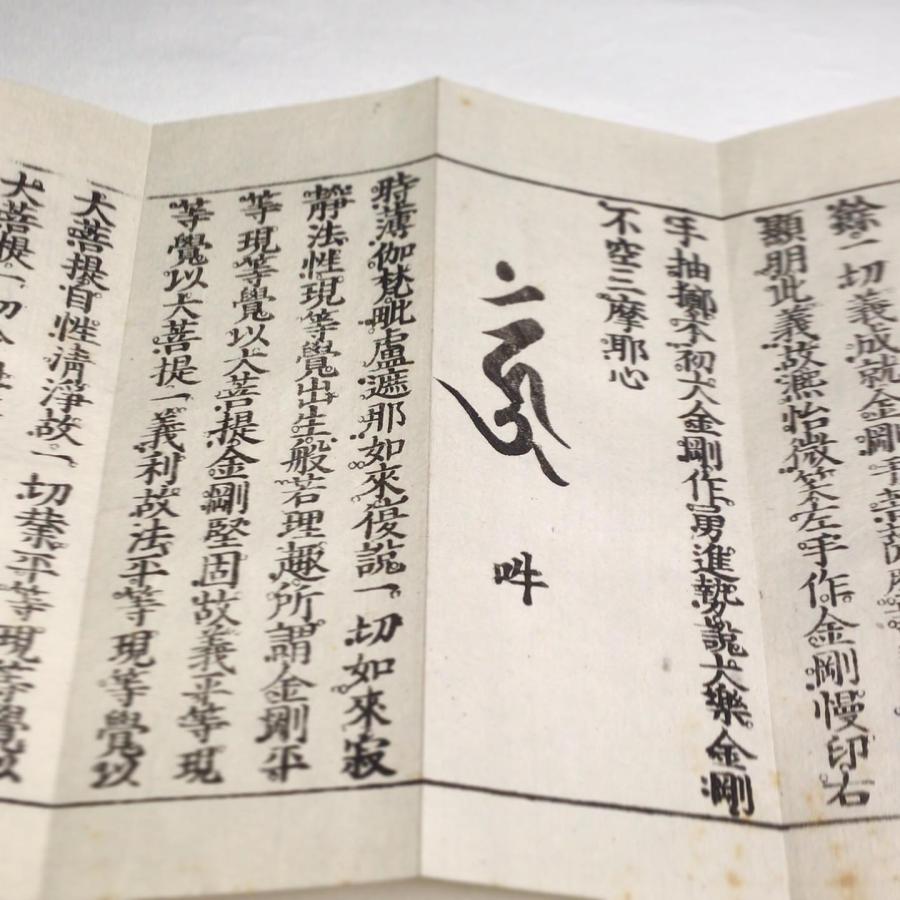 餘一切義成就金剛手菩薩摩
顯明此義故凞怡微笑左手作金剛慢印右
手抽擲本初大金剛作勇進勢說大樂金剛
不空三摩耶心
吽
時薄伽梵毗盧遮那如來復說一切如來寂
靜法性現等覺出生般若理趣所謂金剛平
等現等覺以大菩提金剛堅固故義平等現
等覺以大菩提一義利故法平等現等覺以
大菩提自性清淨故一切業平等現等覺以
大菩提一切分